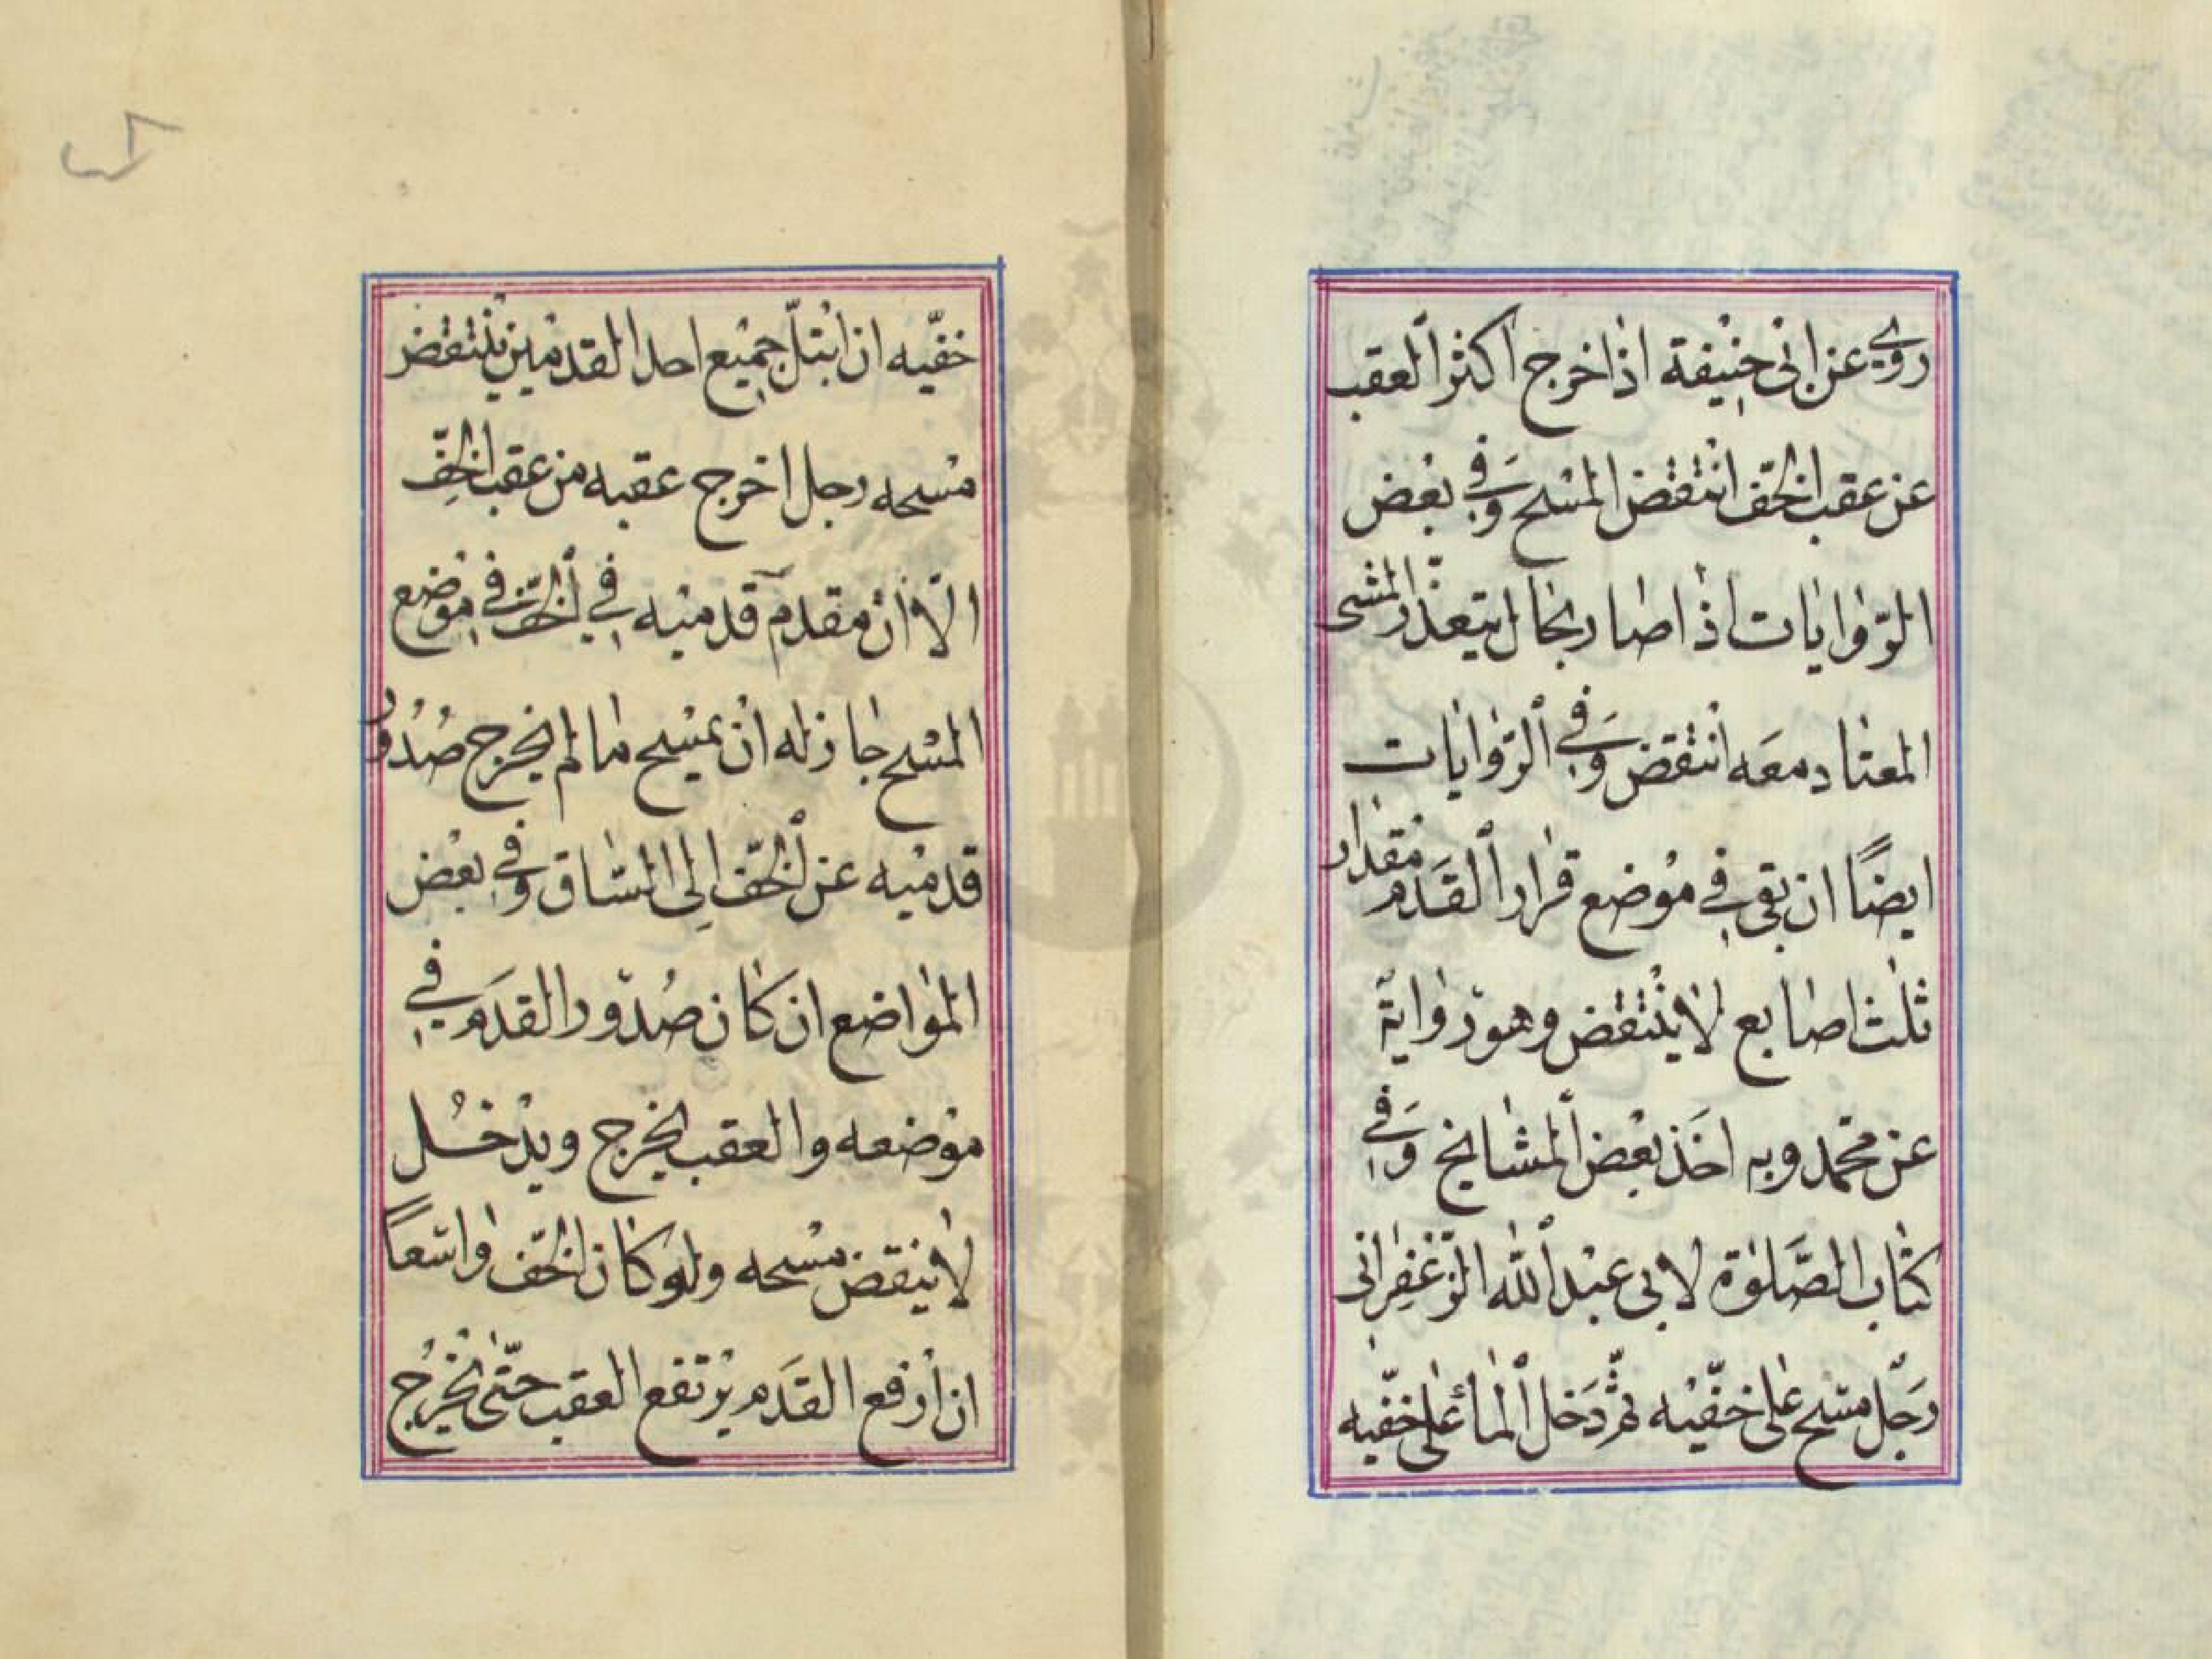 روي عن ابي حنيفة اذا خرج اكثر العقب
عن عقب الخف انتقض المسح وفي بعض
الروايات اذا صار بحال يتعذر المشى
المعتاد معه انتقض وفي الروايات
ايضًا ان بقى في موضع قرار القدم مقدار
ثلث اصابع لا ينتقض وهو رواية
عن محمد وبه اخذ بعض المشايخ وفي
كتاب الصلوة لابى عبد الله الزعفرانى
رجل مسح على خفيه ثم دخل الماء على خفيه
خفّيه ان ابتلّ جميع احد القدمين ينتقض
مسحه رجل اخرج عقبه من عقب الخفّ
الّا ان مقدم قدميه في الخف في موضع
المسح جاز له ان يمسح ما لم يخرج صُدُور
قدميه عن الخفّ الى الساق وفي بعض
المواضع ان كان صُدور القدم في
موضعه والعقب يخرج ويدخل
لا ينقض مسحه ولو كان الخفّ واسعاً
ان ارفع القدم يرتفع العقب حتّى يخرج